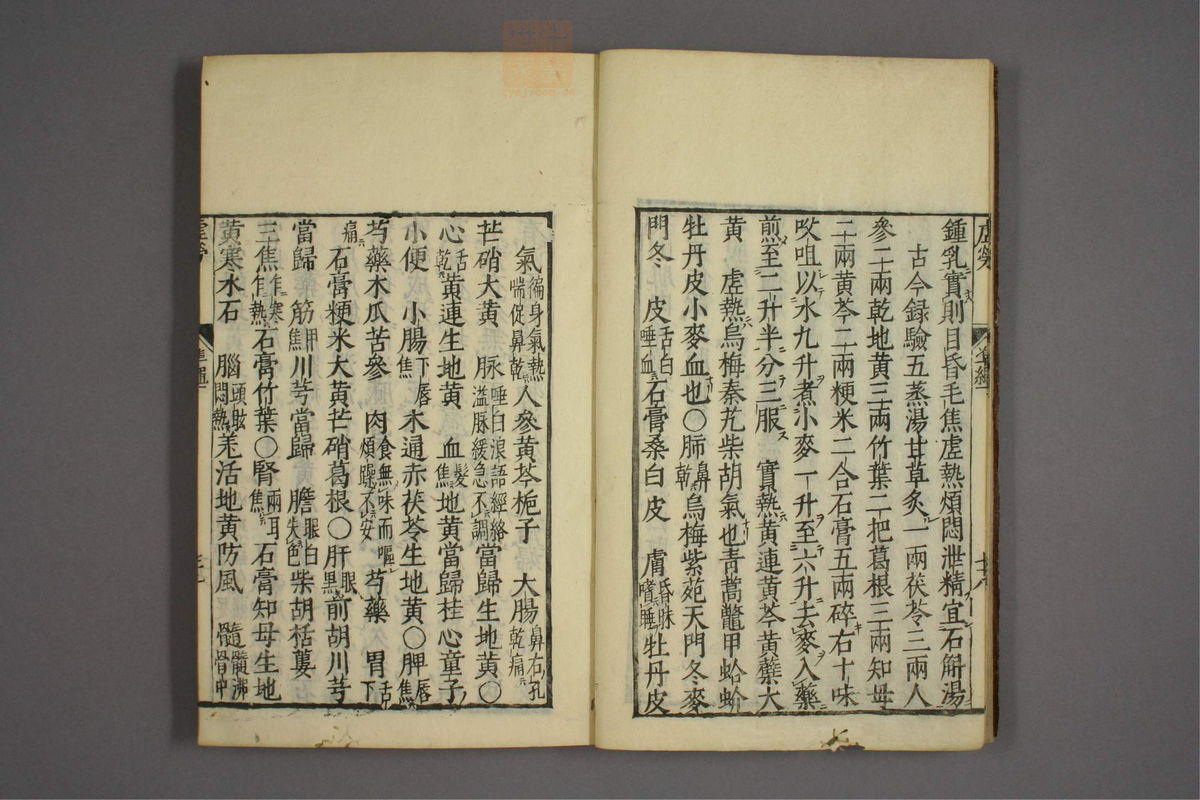 鍾乳實則目昏毛焦虛熱煩悶泄精宜石斛湯
古今録驗五蒸湯甘草炙一兩茯苓三兩人
參二兩乾地黄三兩竹葉二把葛根三兩知母
二兩黄芩二兩粳米二合石膏五兩碎右十味
㕮咀以水九升煮小麥一升至六升去麥入藥
煎至二升半分三服 實熱黄連黄芩黄蘗大
黄 虛熱烏梅秦艽柴胡氣也青蒿鼈甲蛤蚧
牡丹皮小麥血也〇肺鼻乾烏梅紫苑天門冬麥
門冬 皮舌白唾血石膏桑白皮 膚昏昧嗜睡牡丹皮
氣徧身氣熱喘促鼻乾人參黄芩梔子 大腸鼻右孔乾痛
芒硝大黄 脉唾白浪語經絡溢脉緩急不調當歸生地黄〇
心舌乾黄連生地黄 血髮焦地黄當歸桂心童子
小便 小腸下唇焦木通赤茯苓生地黄〇脾唇焦
芍藥木瓜苦參 肉食無味而嘔煩躁不安芍藥 胃舌下
痛石膏粳米大黄芒硝葛根〇肝眼黑前胡川芎
當歸 筋甲焦川芎當歸 膽眼白失色柴胡栝蔞
三焦乍寒乍熱石膏竹葉〇腎兩耳焦石膏知母生地
黄寒水石 腦頭眩悶熱羌活地黄防風 髓髓沸骨中